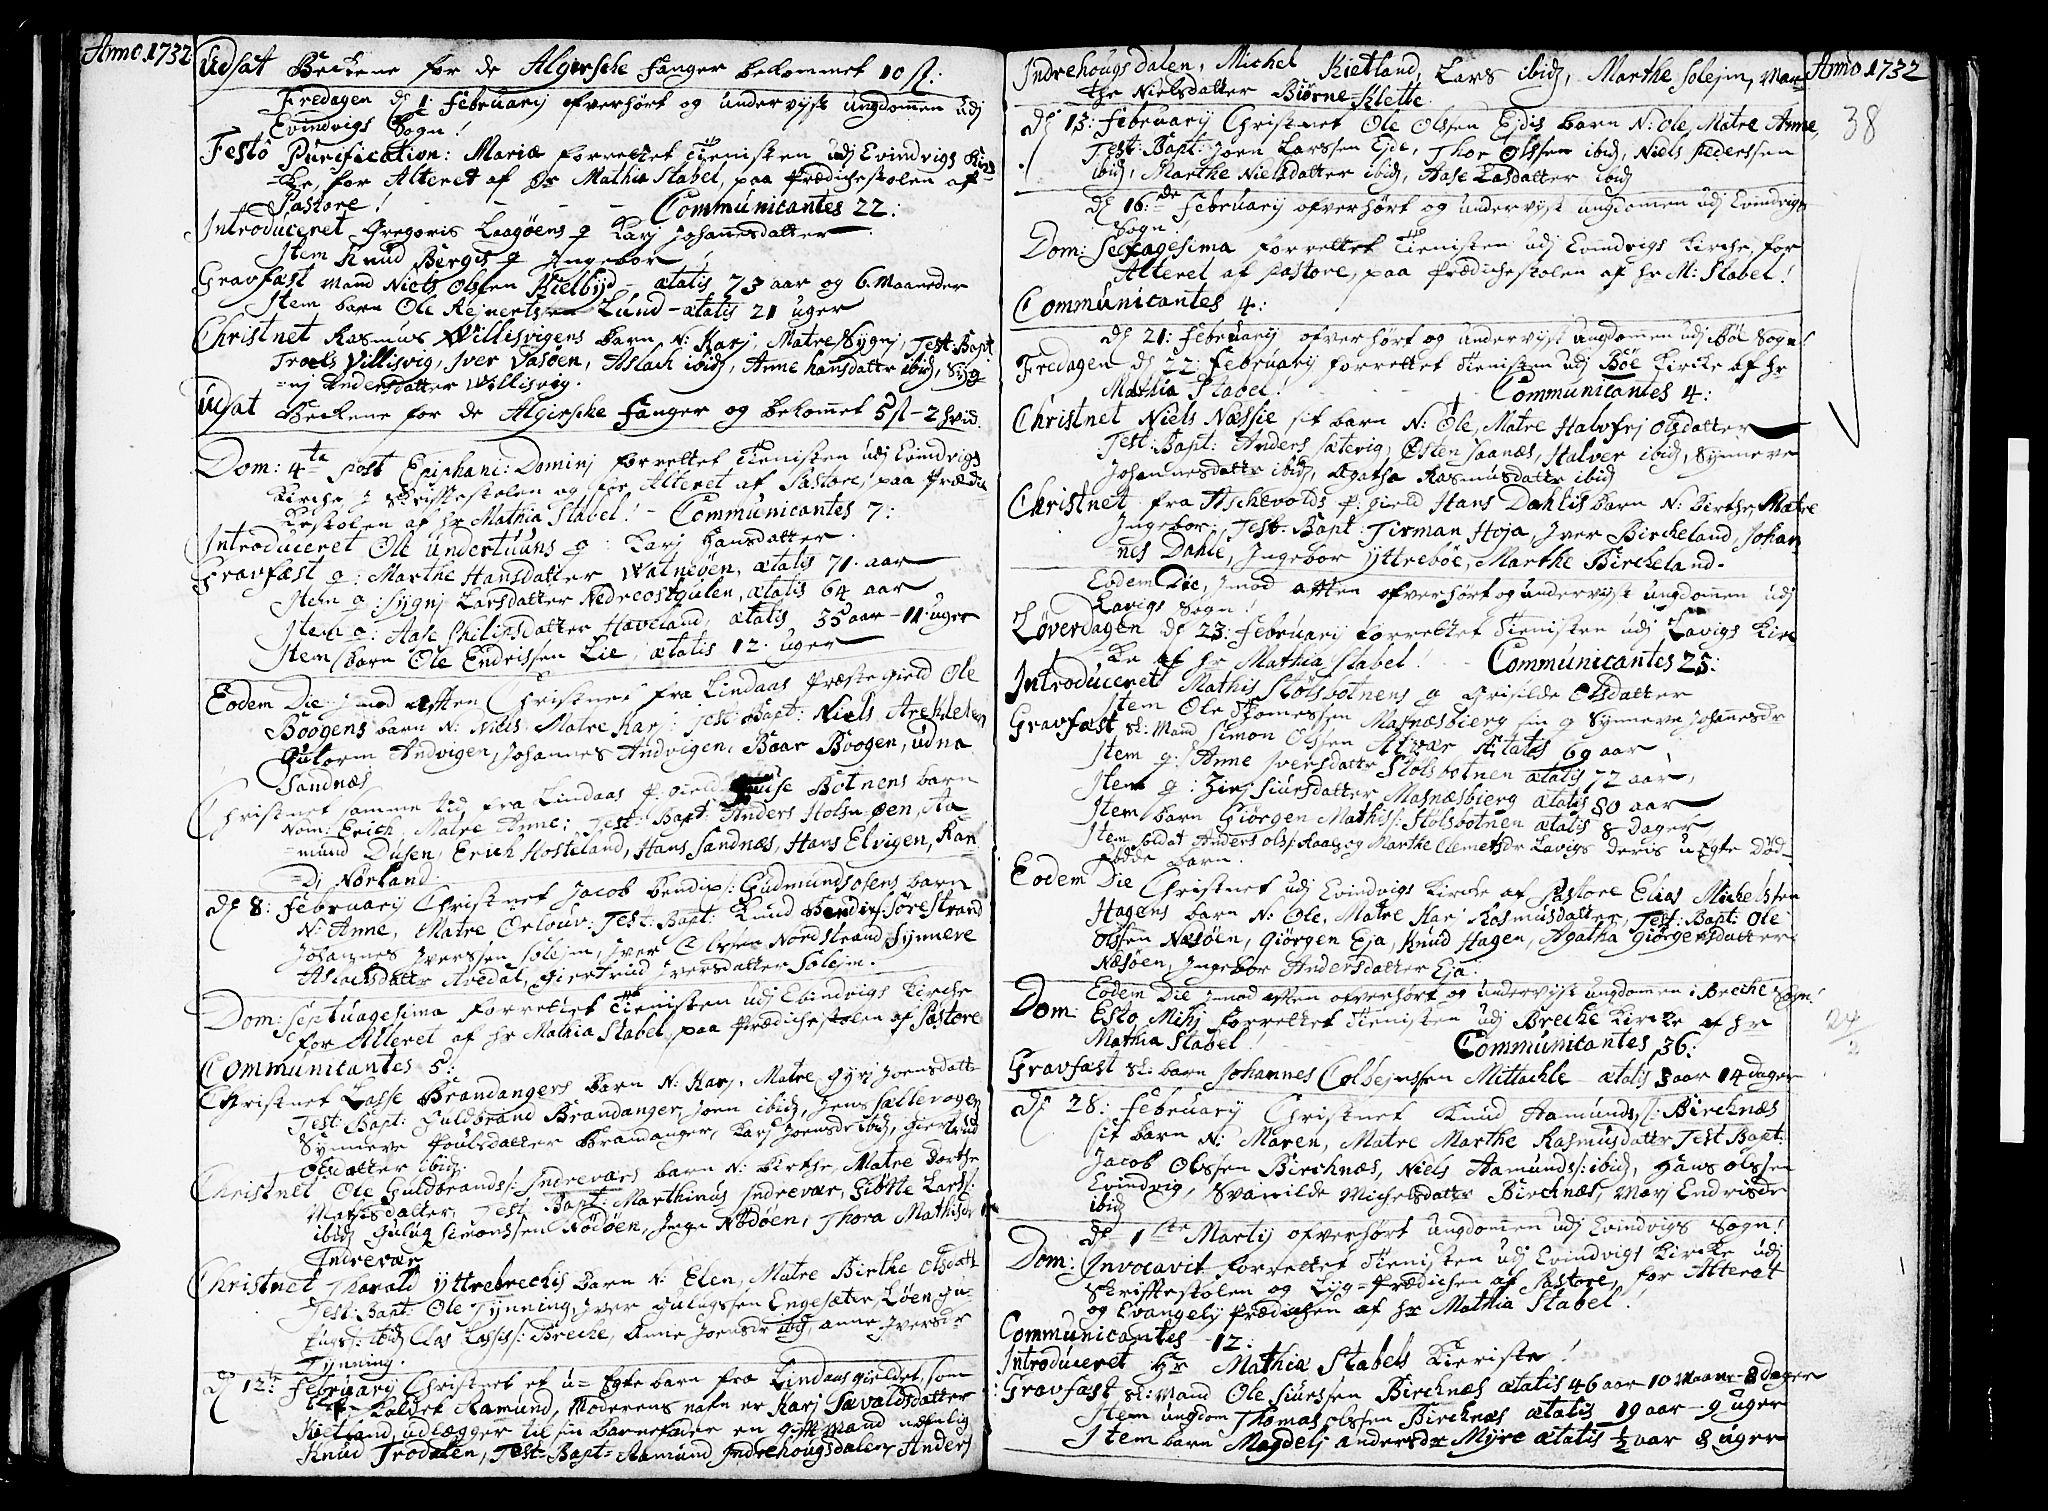 Anno 1732
Udsat Beckene for de Algirske fanger bekommet 10 ß:
Fredagen dȷ 1 Februarij ofverhört og undervijst ungdomen udj
Evindvigs Sogn!
Festô Purification: Mariæ forrettet Tienisten udj Evindvigs Kir=
=ke, for Alteret af Hr Mathia Stabel, paa Prædichestolen af
Pastore! - - - Communicantes 22:
Introduceret Gregoris Laagöens q Karj Johannesdatter
Item Knud Bergis q Ingebor
Gravfæst Mand Niels Olssen Kielbÿd - ætatis 73 aar og 6. Maaneder
Item barn Ole Rejnertssen Lund - ætatis 21 uger
Christnet Rasmus Willisvigens barn N: Karj, Matre Sygnj, Test: Bapt
Troels Villisvig, Iver Vasöen, Aslach ibid, Anne Hansdatter ibid, Syg=
=nj Andersdatter Willisvig.
Udsat Beckene for de Algirske Fanger og bekomet 5 ß - 2 hvid.
Dom: 4ta Post Epiphani: Dominj forrettet Tienisten udj Evindvigs
Kirche I Skriftestolen og for Alteret af Pastore, paa Prædi=
kestolen af Hr Mathia Stabel! - Communicantes 7:
Introduceret Ole Undertuuns q: Karj Hansdatter.
Gravfæst q: Marthe Hansdatter Watnöen, ætatis 71. aar
Item q: Sygnj Larsdatter Nedreostgulen, ætatis 64 aar
Item q: Aase Philipsdatter Haveland, ætatis 35 aar - 11: uger
Item barn Ole Endrissen Lie, ætatis 12. uger
Eodem Die imod aften Christnet fra Lindaas Præstegield Ole
Boogens barn N: Niels. Matre Karj: Test: Bapt: Niels Arekletten
Gutorm Andvigen, Johannes Andvigen, Baar Boogen, udna
Sandnæs
Christnet samme tid fra Lindaas P: gield Botnens barn
Nom: Erich, Matre Anne: Test: Bapt: Anders Holsnöen, Aa=
=mund Dusen, Erich Hosteland, Hans Sandnæs, Hans Elvigen, Ran=
=Dj Nörland.
dȷ 8: Februarij Christnet Jacob Bendix: Gudmundsosens barn
N: Anne, Matre Orlouv: Test: Bapt: Knud Bendix: Söre Strand
Johannes Iverssen Solejm, Iver Olssen Nordstrand, Synneve
Aslachsdatter Avedal, Giertrud Iversdatter Solejm.
Dom: Septuagesima forrettet Tienisten udj Evindvigs Kirche
for Alteret af Hr Mathia Stabel, paa Prædichestolen af Pastore
Communicantes 5:
Christnet Lasse Brandangers barn N: Karj, Matre Gyrj Joensdatt
Test: Bapt: Guldbrand Brandanger, Joen ibid, Jens Sællevogen
Synneve Poulsdatter Brandanger, Karj Joensdr ibid, Giertrud
Olsdatter ibid.
Christnet Ole Guldbrands: Indreværs barn N: Birthe, Matre Dorthe
Mathisdatter, Test Bapt: Marthinus Indrevær, Giötte Lars:
ibid Gulug Simonssen Nödöen, Inge Nödöen, Thora Mathisdr
Indrevær
Christnet Tharald Yttrebrechis barn N: Elen, Matre Birthe Olsdatt
Test: Bapt: Ole Tynning, Iver Gulugssen Engesæter, Löen Gu=
lugs: ibid Clas Lasses: Breche, Anne Joensdr ibid, anne Iversdr
Tynning.
dȷ 12te Februarij Christnet et u=Egte barn fra Lindaas gieldet, som
Kaldet Aamund, Moderens nafn er Karj Tavaldsdatter
Kietland, udlægger til sin Barnefader en gift mand nemlig
Knud Trodalen, Test: Bapt: Aamund Indrehougsdalen, Anders
Indrehougsdalen, Michel Kietland, Lars ibid, Marthe Solejm, Mar=
the Nielsdatter Biörne=Klette.
Anno 1732
38
dȷ 13: Februarij Christnet Ole Olssen Ejdis barn N: Ole, Matre Anne,
Test: Bapt: Joen Larssen Ejde, Thor Olssen ibid, Niels Pederssen
ibid, Marthe Nielsdatter ibid, Aase Lasdatter ibid
dȷ 16:de Februarij ofverhört og undervijst ungdomen udj Evindvigs
Sogn!
Dom: Sexagesima forrettet Tienisten udj Evindvigs Kirche, for
Alteret af Pastore, paa Prædichestolen af Hr M: Stabel!
Communicantes 4:
dȷ 21: Februarij ofverhört og undervijst ungdommen udj Böe Sogn!
Fredagen dȷ 22: Februarij forrettet Tienisten udj Böe Kirke af Hr
Mathia Stabel! - - Communicantes 4:
Christnet Niels Næssje sit barn N: Ole, Matre Halvfrj Olsdatter
Test: Bapt: Anders Sætervig, Östen Saanæs, Halver ibid, Synneve
Johannesdattr ibid, Agatha Rasmusdatter ibid
Christnet fra Aschevolds P: gield Hans Dahlis barn N: Birthe, Matre
Ingebor: Test: Bapt: Tirman Hoja, Iver Bircheland, Johan=
nes Dahle, Ingebor Yttreböe, Marthe Bircheland.
Eodem Die, imod aften ofverhört og undervijst ungdomen udj
Lavigs Sogn!
Löverdagen dȷ 23: Februarij forrettet Tienisten udj Lavigs Kir=
=ke af Hr Mathia Stabel! - Communicantes 25:
Introduceret Mathis Stölsbotnens q Grisilde Olsdatter
Item Ole Thomessen Masnæsbierg sin q Synneve Johannesdr
Gravfæst Sl: Mand Simon Olssen Alvær Ætatis 69 aar
Item q: Anne Iversdattr Stölsbotnen ætatis 72 aar,
Item q: Zirj Siursdatter Masnæsbierg ætatis 80 aar
Item barn Giörgen Mathis: Stölsbotnen ætatis 8 Dager
Item Soldat Anders Ols: Raas og Marthe Clemetsdr Lavigs deris u Egte Död=
födde barn.
Eodem Die Christnet udj Evindvigs Kirche af Pastore Elias Michelssen
Hagens barn N: Ole, Matre Karj Rasmusdatter, Test: Bapt: Ole
Olssen Næsöen, Giörgen Eja, Knud Hagen, Agatha Giörgensdatter
Næsöen, Ingebor Andersdatter Eja:
Eodem Die imod aften ofverhört og undervijst ungdomen i Breche Sogn!
Dom: Esto Mihj forrettet Tienisten udj Breche Kircke af Hr
Mathia Stabel! - - Communicantes 36:
24/2
Gravfæst Sl: barn Johannes Colbejnssen Mittachle - ætatis 3 aar 14 dager
dȷ 28: Februarij Christnet Knud Aamunds: Birchnæs
sit barn N: Maren, Matre Marthe Rasmusdatter Test Bapt:
Jacob Olssen Birchnæs, Niels Aamunds: ibid, Hans Olssen
Evindvig, Svanilde Michelsdattr Birchnæs, Marj Endrisdr
ibid
dȷ 1te Martij ofverhört ungdomen udj Evindvigs Sogn!
Dom: Invocavit forrettet Tienisten udj Evindvigs Kircke udj
Skriftestolen og Lijg=Prædichen af Pastore, for Alteret
og Evangelij Prædichen af Hr Mathia Stabel!
Communicantes 12:
Introduceret Hr Mathiæ Stabels Kieriste!
Gravfæst Sl: Mand Ole Siurssen Birchnæs ætatis 46 aar 10 Maane- 8 dager
Item ungdom Thomas Olssen Birchnæs ætatis 19 aar - 9 uger
Item barn Magdelj Andersdr Myre ætatis ½ aar 8 uger